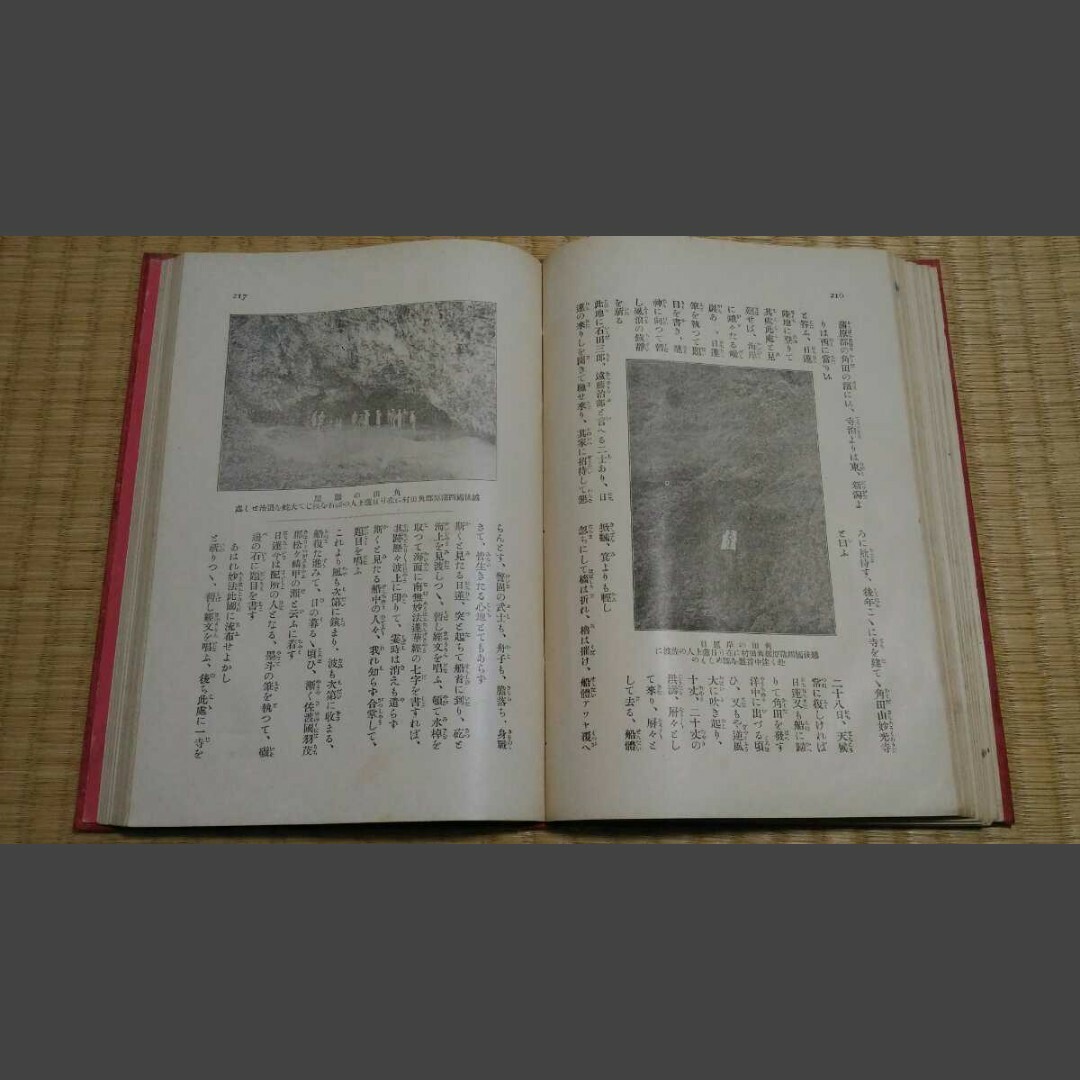 216
蒲原郡の角田の濱には、寺泊よりは東、新潟よ
りは西に當りし
と答ふ、日蓮
陸地に登りて
其處此處と見
筆を執つて題
目を書き、
神に向つて朝
し風浪の鎮靜
を祈る
此地に石田三郎、遠藤治郎と言へる二士あり、日
蓮の來りしを聞きて馳せ來り、其家に招待して懇
ろに款待す、後年こゝに寺を建てゝ角田山妙光寺
と曰ふ
二十八日、天候
常に復しければ
日蓮又も船に歸
りて角田を發す
洋中に出づる頃
ひ、又もや逆風
大に吹き起り、
十丈、二十丈の
洪濤、層々とし
て來り、層々と
して去る、船體
忽ちにして檣は折れ、櫓は摧け、船體アワヤ覆へ
217
角田の巖屈
らんとす、警固の武士も、舟子も、膽落ち、身戰
きて、皆生きたる心地とてもあらず
斯くと見たる日蓮、突と起ちて船首に到り、屹と
海上を見渡しつゝ、暫し經文を唱ふ、頓て水棹を
取つて海面に南無妙法蓮華經の七字を書すれば、
其跡歷々波上に印りて、霎時は消えも遣らず
斯くと見たる船中の人々、我れ知らず合掌して、
題目を唱ふ
これより風も次第に鎮まり、波も次第に收まる、
船復た進みて、日の暮るゝ頃ひ、漸く佐渡國羽茂
郡松ケ崎の澗と云ふに着す
日蓮今は配所の人となる、墨斗の筆を執つて、磯
邊の石に題目を書す
あはれ妙法此國に流布せよかし
と祈りつゝ、暫し經文を唱ふ、後ち此處に一寺を